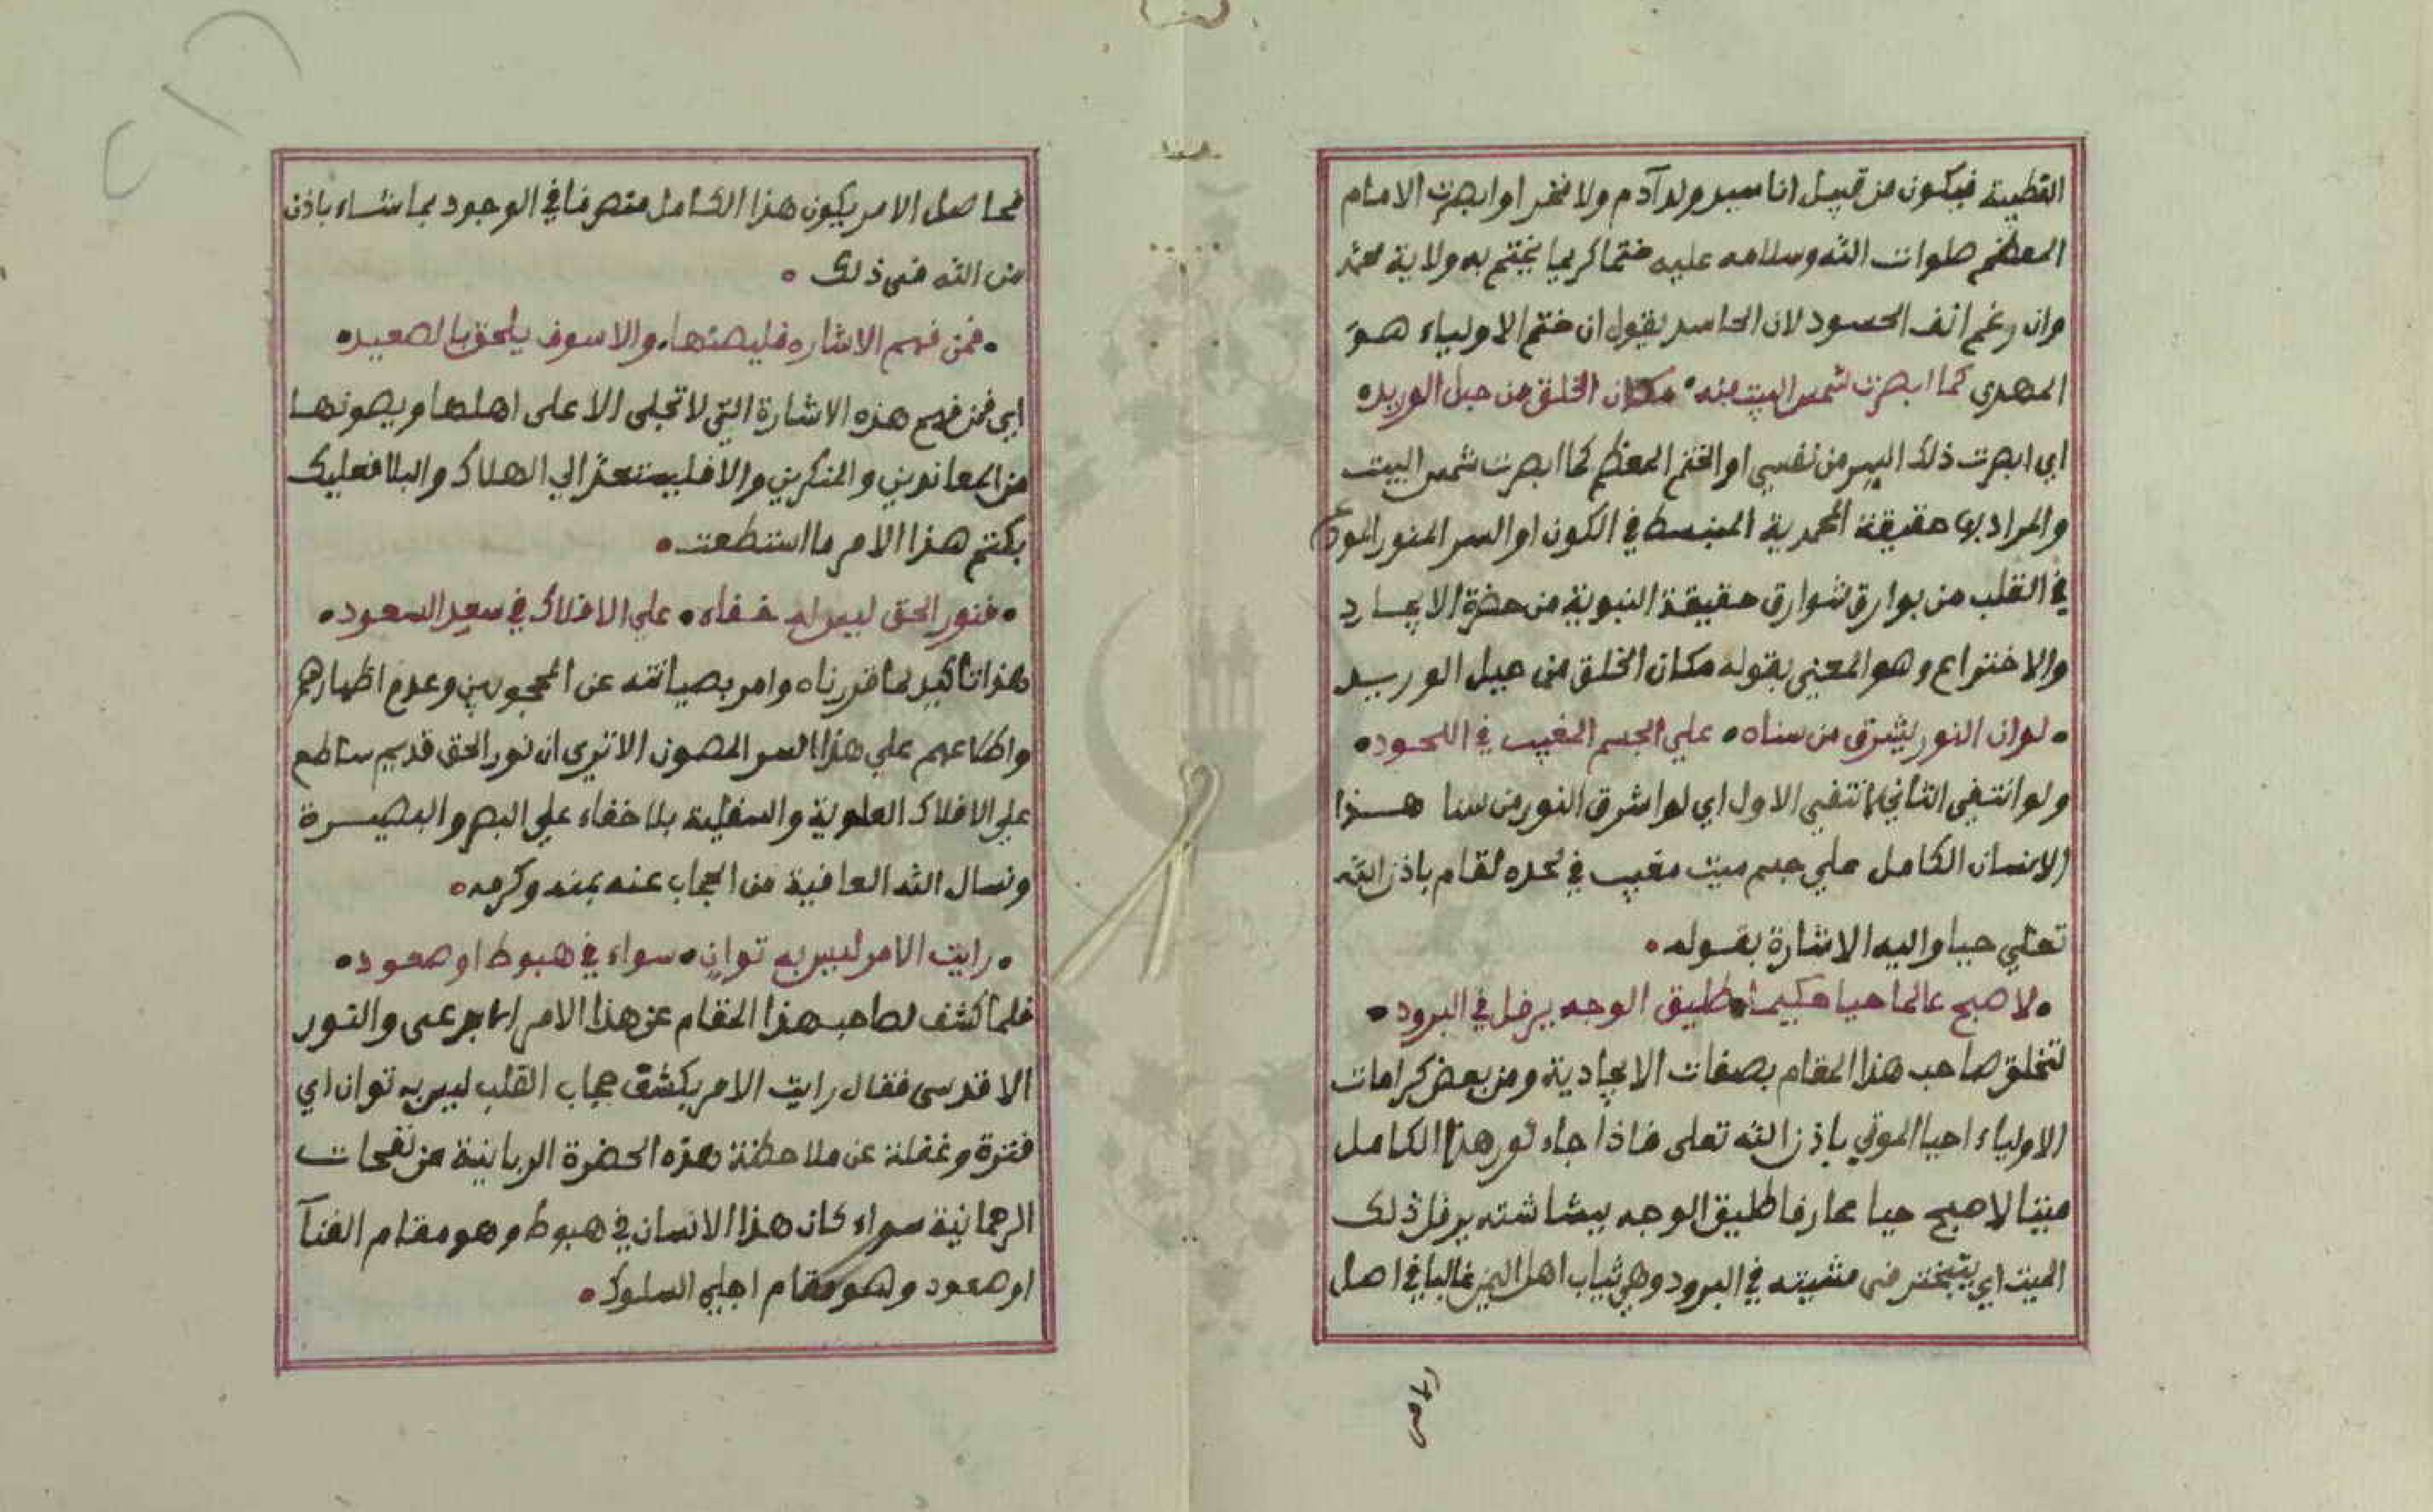 القطبية فيكون من قبيل انا سيد ولد آدم ولا فخر او ابصرت الامام
المعظم صلوات الله وسلامه عليه ختما كريما يختم به ولاية محمد
وان رغم انف الحسود لان الحاسد يقول ان ختم الاولياء هو
المهدي كما ابصرت شمس البيت منه • مكان الخلق من حبل الوريد •
اي ابصرت ذلك السر من نفسي او الختم المعظم كما ابصرت شمس البيت
والمراد بها حقيقة المحمدية المنبسط في الكون او السر المنور المودع
في القلب من بوارق شوارق حقيقة النبوية من حضرة الايجاد
والاختراع وهو المعني بقوله مكان الخلق من حبل الوريد
• لو ان النور يشرق من سناه • علي الجسم المغيب في اللحود •
ولو انتفي الثاني لانتفي الاول اي لو اشرق النور من سنا هذا
الانسان الكامل علي جسم ميت مغيب في لحده لقام باذن الله
تعلي حيا واليه الاشارة بقوله •
• لاصبح عالما حيا حكيما • طليق الوجه يرفل في البرود •
لتخلق صاحب هذا المقام بصفات الايجادية ومن بعض كرامات
الاولياء احيا الموتي باذن الله تعلى فاذا جاء نور هذا الكامل
ميتا لاصبح حيا عارفا طليق الوجه ببشاشته يرفل ذلك
الميت اي يتبختر في مشيته في البرود وهي ثياب اهل اليمن غالبا في اصل
الامر
فحاصل الامر يكون هذا الكامل متصرفا في الوجود بما شاء باذن
من الله في ذلك •
• فمن فهم الاشاره فليصنها • والا سوف يلحق بالصعيد •
اي فمن فهم هذه الاشارة التي لا تجلى الا على اهلها ويصونها
من المعاندين والمنكرين والا فليستعد الي الهلاك والبلا فعليك
بكتم هذا الامر ما استطعت •
• فنور الحق ليس له خفاء • علي الافلاك في سعد السعود •
هذا تاكيد لما قررناه وامر بصيانته عن المحجوبين وعدم اظهارهم
واطلاعهم علي هذا السر المصون الا تري ان نور الحق قديم ساطع
علي الافلاك العلوية والسفلية بلا خفاء علي البصر والبصيرة
ونسال الله العافية من الحجاب عنه بمنه وكرمه •
• رايت الامر ليس به توان • سواء في هبوط او صعود •
فلما كشف لصاحب هذا المقام عن هذا الامر والنور
الاقدسى فقال رايت الامر بكشف حجاب القلب ليس به توان اي
فترة وغفلة عن ملاحظة هذه الحضرة الربانية من نفحات
الرحمانية سواء كان هذا الانسان في هبوط وهو مقام الفنآ
او صعود وهو مقام اجلي السلوك •